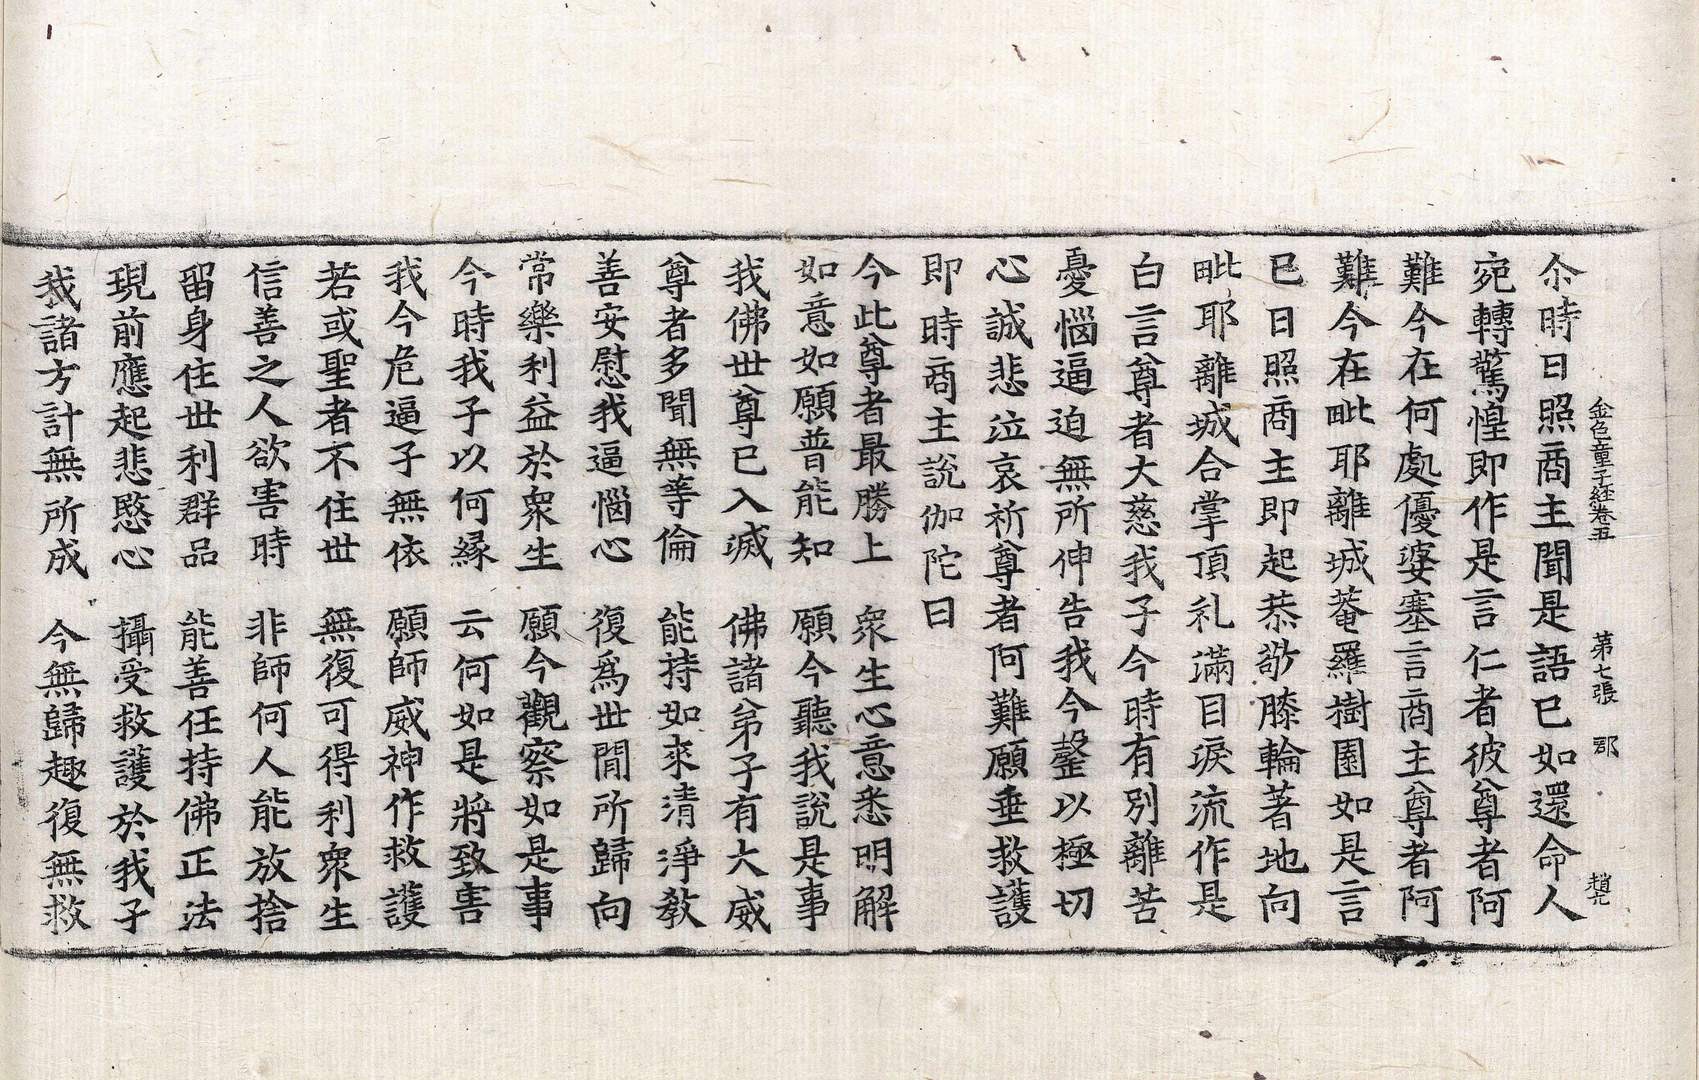 金色童子經卷五 第七張 郡 趙凢
尒時日照商主聞是語已如還命人
宛轉驚惶即作是言仁者彼尊者阿
難今在何處優婆塞言商主尊者阿
難今在毗耶離城菴羅樹園如是言
已日照商主即起恭敬膝輪著地向
毗耶離城合掌頂礼滿目淚流作是
白言尊者大慈我子今時有別離苦
憂惱逼迫無所伸告我今罄以極切
心誠悲泣哀祈尊者阿難願垂救護
即時商主說伽陀曰
今此尊者最勝上 衆生心意悉明解
如意如願普能知 願今聽我說是事
我佛世尊已入滅 佛諸弟子有大威
尊者多聞無等倫 能持如來清淨教
善安慰我逼惱心 復爲世閒所歸向
常樂利益於衆生 願今觀察如是事
今時我子以何緣 云何如是將致害
我今危逼子無依 願師威神作救護
若或聖者不住世 無復可得利衆生
信善之人欲害時 非師何人能放捨
留身住世利群品 能善任持佛正法
現前應起悲愍心 攝受救護於我子
我諸方計無所成 今無歸趣復無救